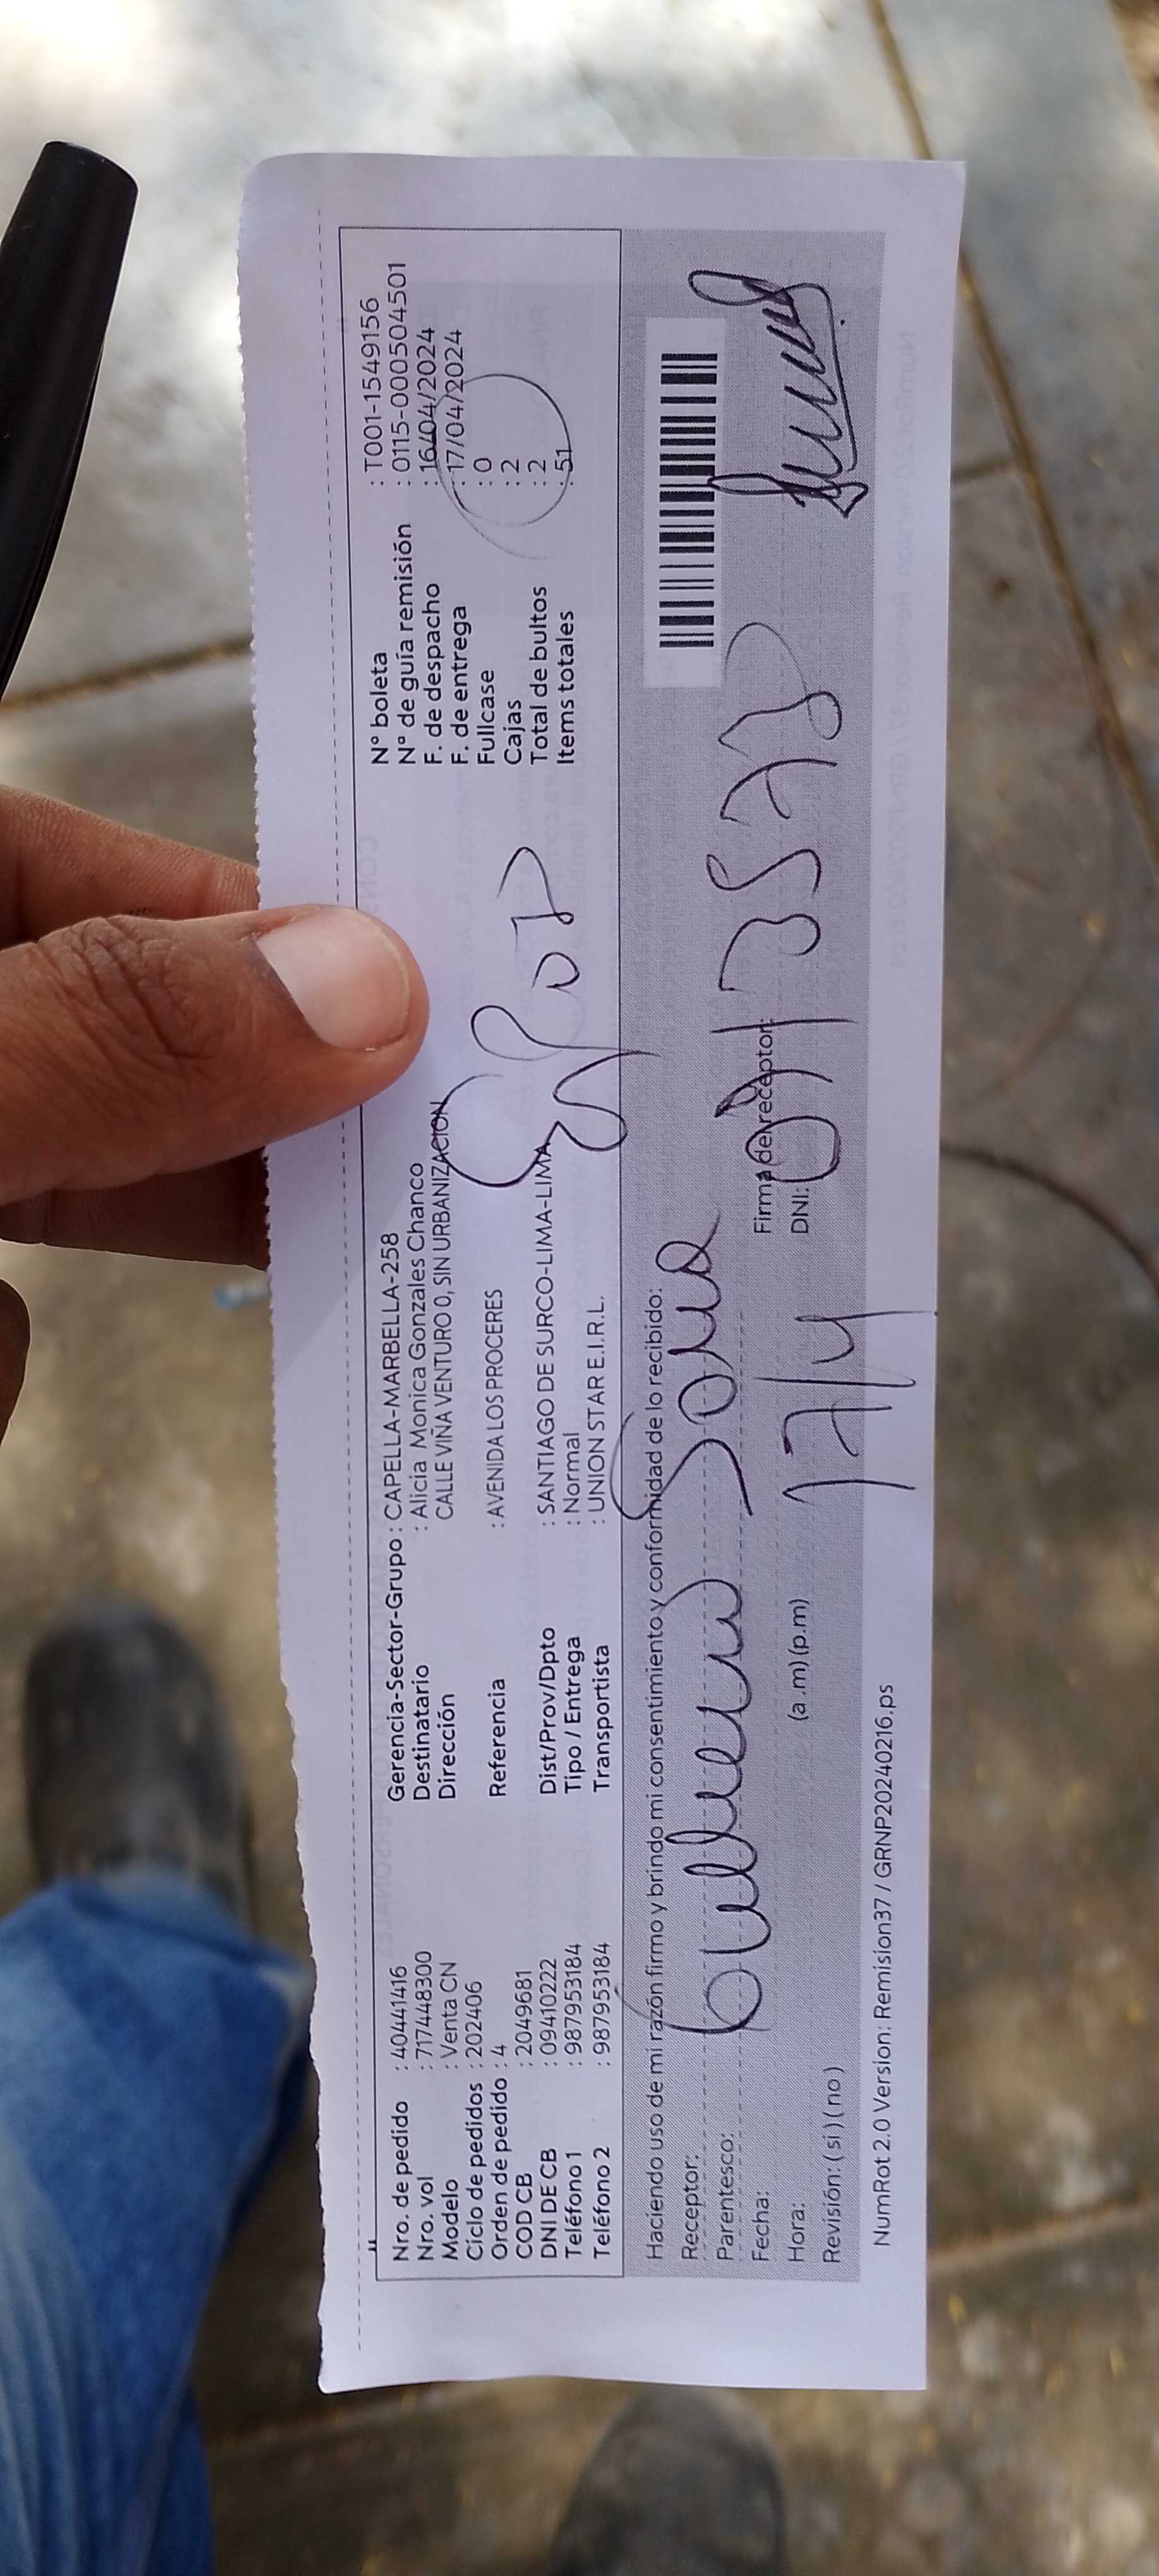 Nro. de pedido : 40441416
Nro. vol : 717448300
Modelo : Venta CN
Ciclo de pedidos : 202406
Orden de pedido : 4
COD CB : 2049681
DNI DE CB : 09410222
Teléfono 1 : 987953184
Teléfono 2 : 987953184
Gerencia-Sector-Grupo : CAPELLA-MARBELLA-258
Destinatario : Alicia Monica Gonzales Chanco
Dirección CALLE VIÑA VENTURO 0, SIN URBANIZACION
Referencia : AVENIDA LOS PROCERES
Dist/Prov/Dpto : SANTIAGO DE SURCO-LIMA-LIMA
Tipo / Entrega : Normal
Transportista : UNION STAR E.I.R.L.
N° boleta : T001-1549156
N° de guía remisión : 0115-000504501
F. de despacho : 16/04/2024
F. de entrega : 17/04/2024
Fullcase : 0
Cajas : 2
Total de bultos : 2
Items totales : 51
Haciendo uso de mi razón firmo y brindo mi consentimiento y conformidad de lo recibido:
Receptor:
Parentesco:
Fecha:
Firma del receptor:
Hora: (a .m) (p.m) 17/4
DNI:
Revisión: ( si ) ( no )
NumRot 2.0 Version: Remision37 / GRNP20240216.ps